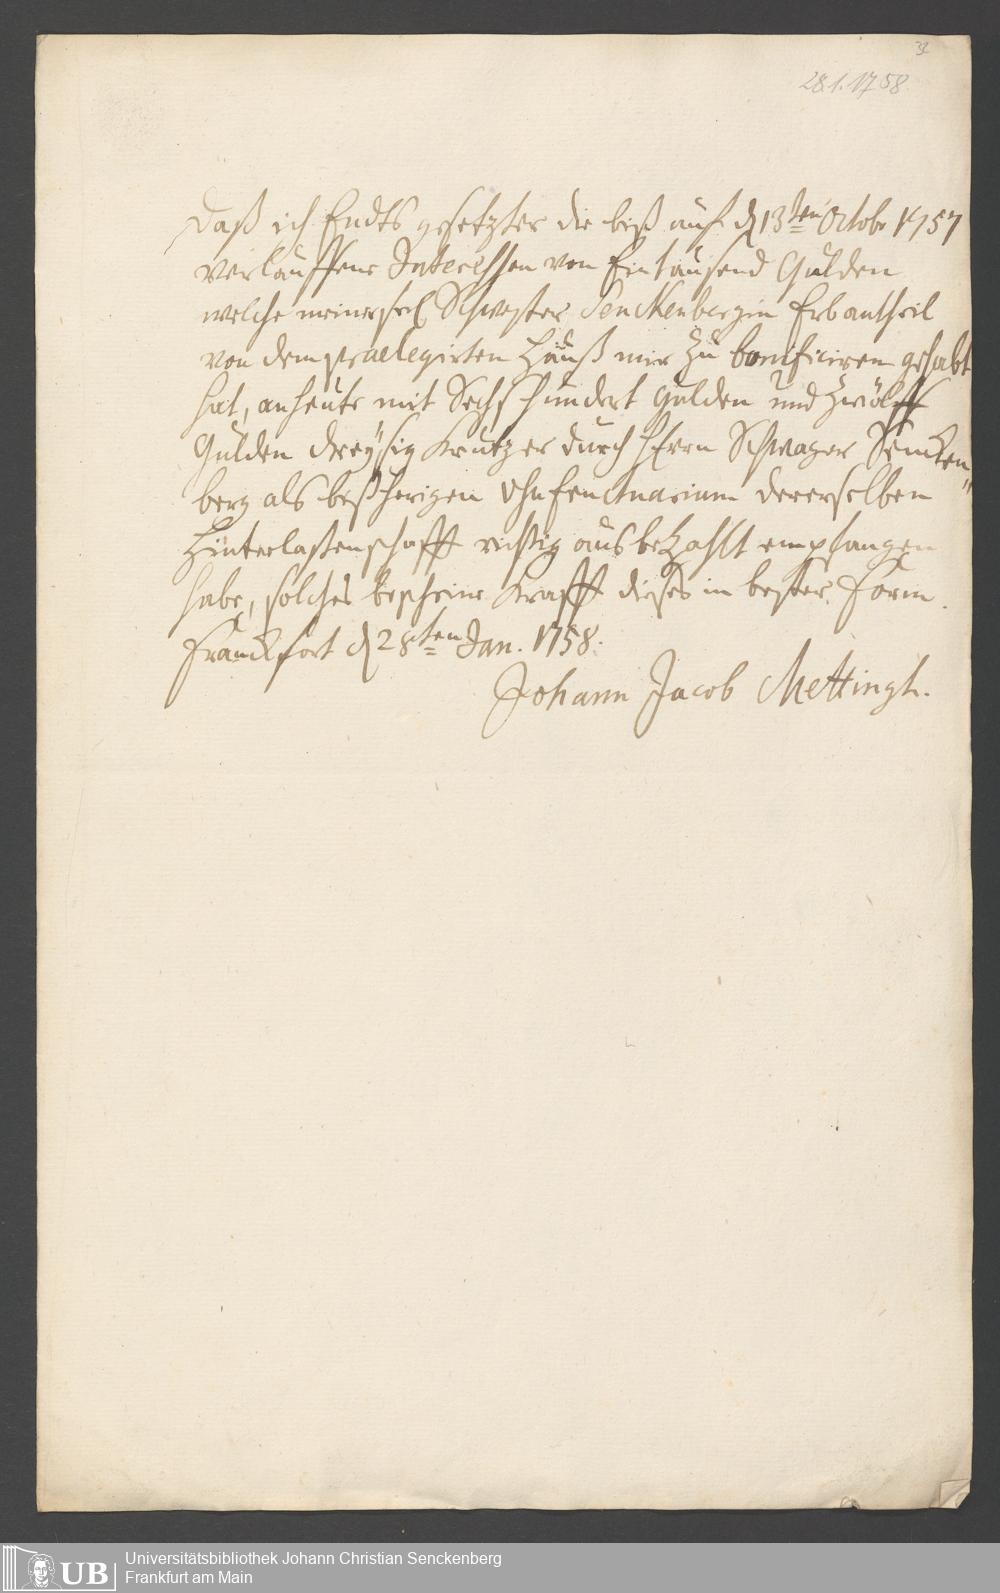 28.1.1758
Daß ich Endts gesetzter die biß auf d 13ten Octobr 1757
verlauffene Interessen von Eintausend Gulden
welche meiner seel Schwester Senckenbergin Erbantheil
von dem praelegirten Hauß mir zu bonificiren gehabt
hat, anheute mit Sechshundert Gulden und Zwölff
Gulden dreÿsig Kreutzer durch Herrn Schwager Sencken
berg als bißherigen Usufructuarium dererselben
Hinterlaßenschafft richtig ausbezahlt empfangen
habe, solches bescheine Krafft dieses in bester Form.
Franckfort d 28ten Jan. 1758.
Johann Jacob Mettingh.
UB Universitätsbibliothek Johann Christian Senckenberg
Frankfurt am Main